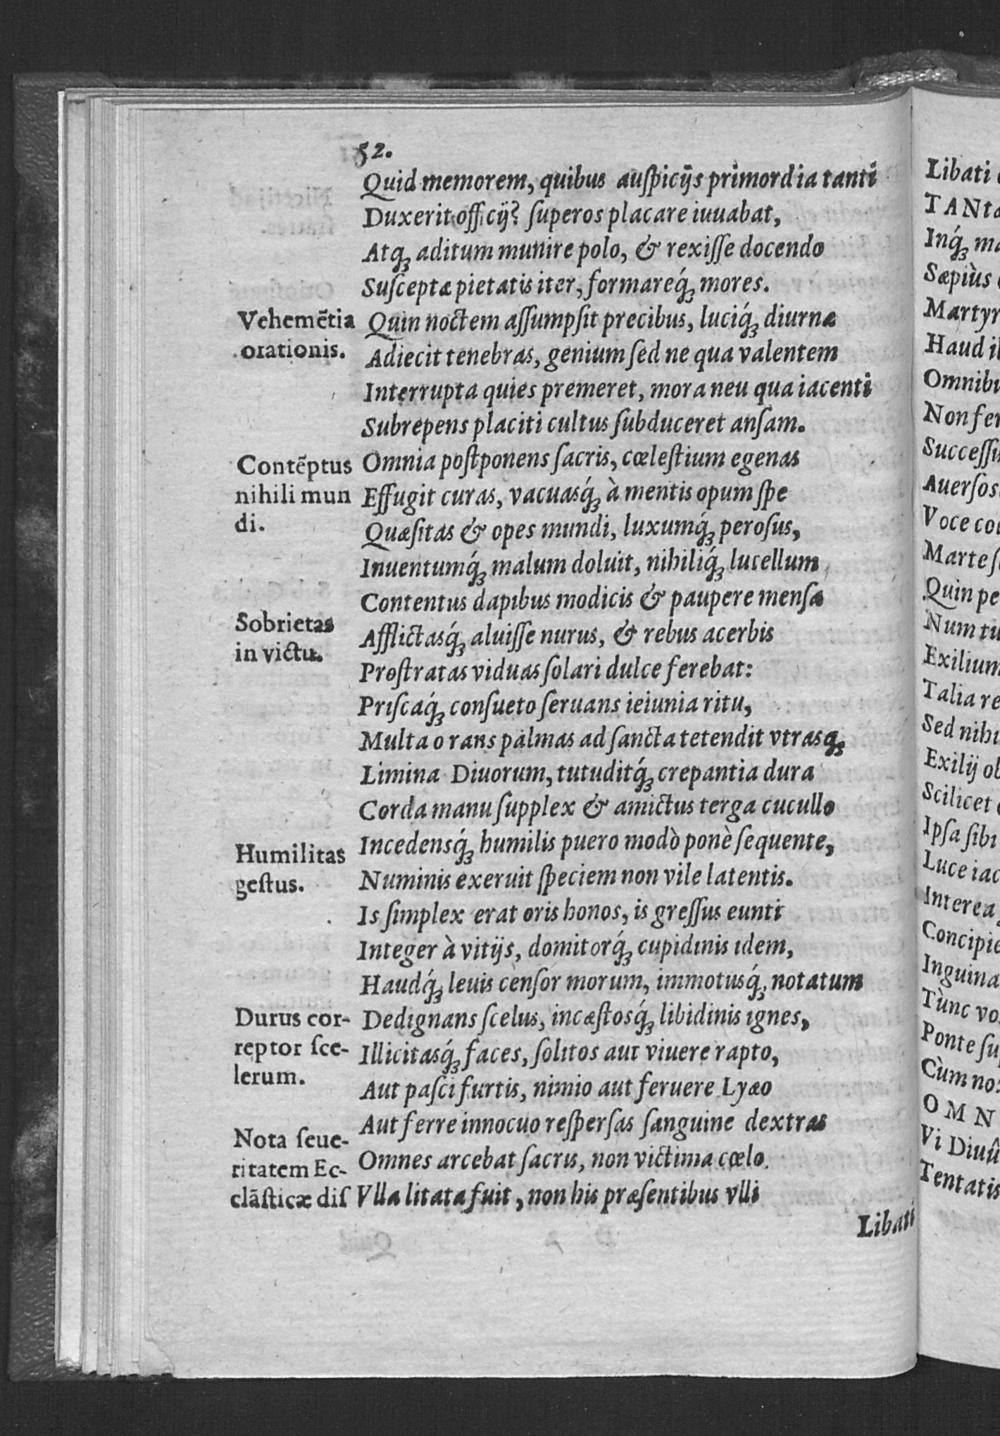 52.
Quid memorem, quibus auſpicijs primordia tanti
Duxerit officij? ſuperos placare iuuabat,
Atq́ꝫ aditum munire polo, & rexiſſe docendo
Suſceptæ pietatis iter, formareq́ꝫ mores.
Vehemẽtia
orationis.
Quin noctem aſſumpſit precibus, luciq́ꝫ diurnæ
Adiecit tenebras, genium ſed ne qua valentem
Interrupta quies premeret, mora neu qua iacenti
Subrepens placiti cultus ſubduceret anſam.
Contẽptus
nihili mun
di.
Omnia poſtponens ſacris, cœleſtium egenas
Effugit curas, vacuasq́ꝫ à mentis opum ſpe
Quæſitas & opes mundi, luxumq́ꝫ peroſus,
Inuentumq́ꝫ malum doluit, nihiliq́ꝫ lucellum
Sobrietas
in victu.
Contentus dapibus modicis & paupere menſa
Afflictasq́ꝫ aluiſſe nurus, & rebus acerbis
Proſtratas viduas ſolari dulce ferebat:
Priſcaq́ꝫ conſueto ſeruans ieiunia ritu,
Multa orans palmas ad ſancta tetendit vtrasqꝫ
Limina Diuorum, tutuditq́ꝫ crepantia dura
Corda manu ſupplex & amictus terga cucullo
Humilitas
geſtus.
Incedensq́ꝫ humilis puero modò ponè ſequente,
Numinis exeruit ſpeciem non vile latentis.
Is ſimplex erat oris honos, is greſſus eunti
Integer à vitijs, domitorq́ꝫ cupidinis idem,
Haudq́ꝫ leuis cenſor morum, immotusq́ꝫ notatum
Durus cor-
reptor ſce-
lerum.
Dedignans ſcelus, incæſtosq́ꝫ libidinis ignes,
Illicitasq́ꝫ faces, ſolitos aut viuere rapto,
Aut paſci furtis, nimio aut feruere Lyæo
Nota ſeue-
ritatem Ec-
clãſticæ diſ
Aut ferre innocuo reſperſas ſanguine dextras
Omnes arcebat ſacris, non victima cœlo
Vlla litata fuit, non his præſentibus vlli
Libati
Libati
Inq́ꝫ
Sæpiùs
Haud
Succeſſu
Auerſos
Voce
Marte
Quin
Num
Exilium
Talia
Sed
Exilij
Scilicet
Ipſa ſibi
Luce
Interea
Inguina
Tùnc
Ponte
Cùm
OMN
Vi